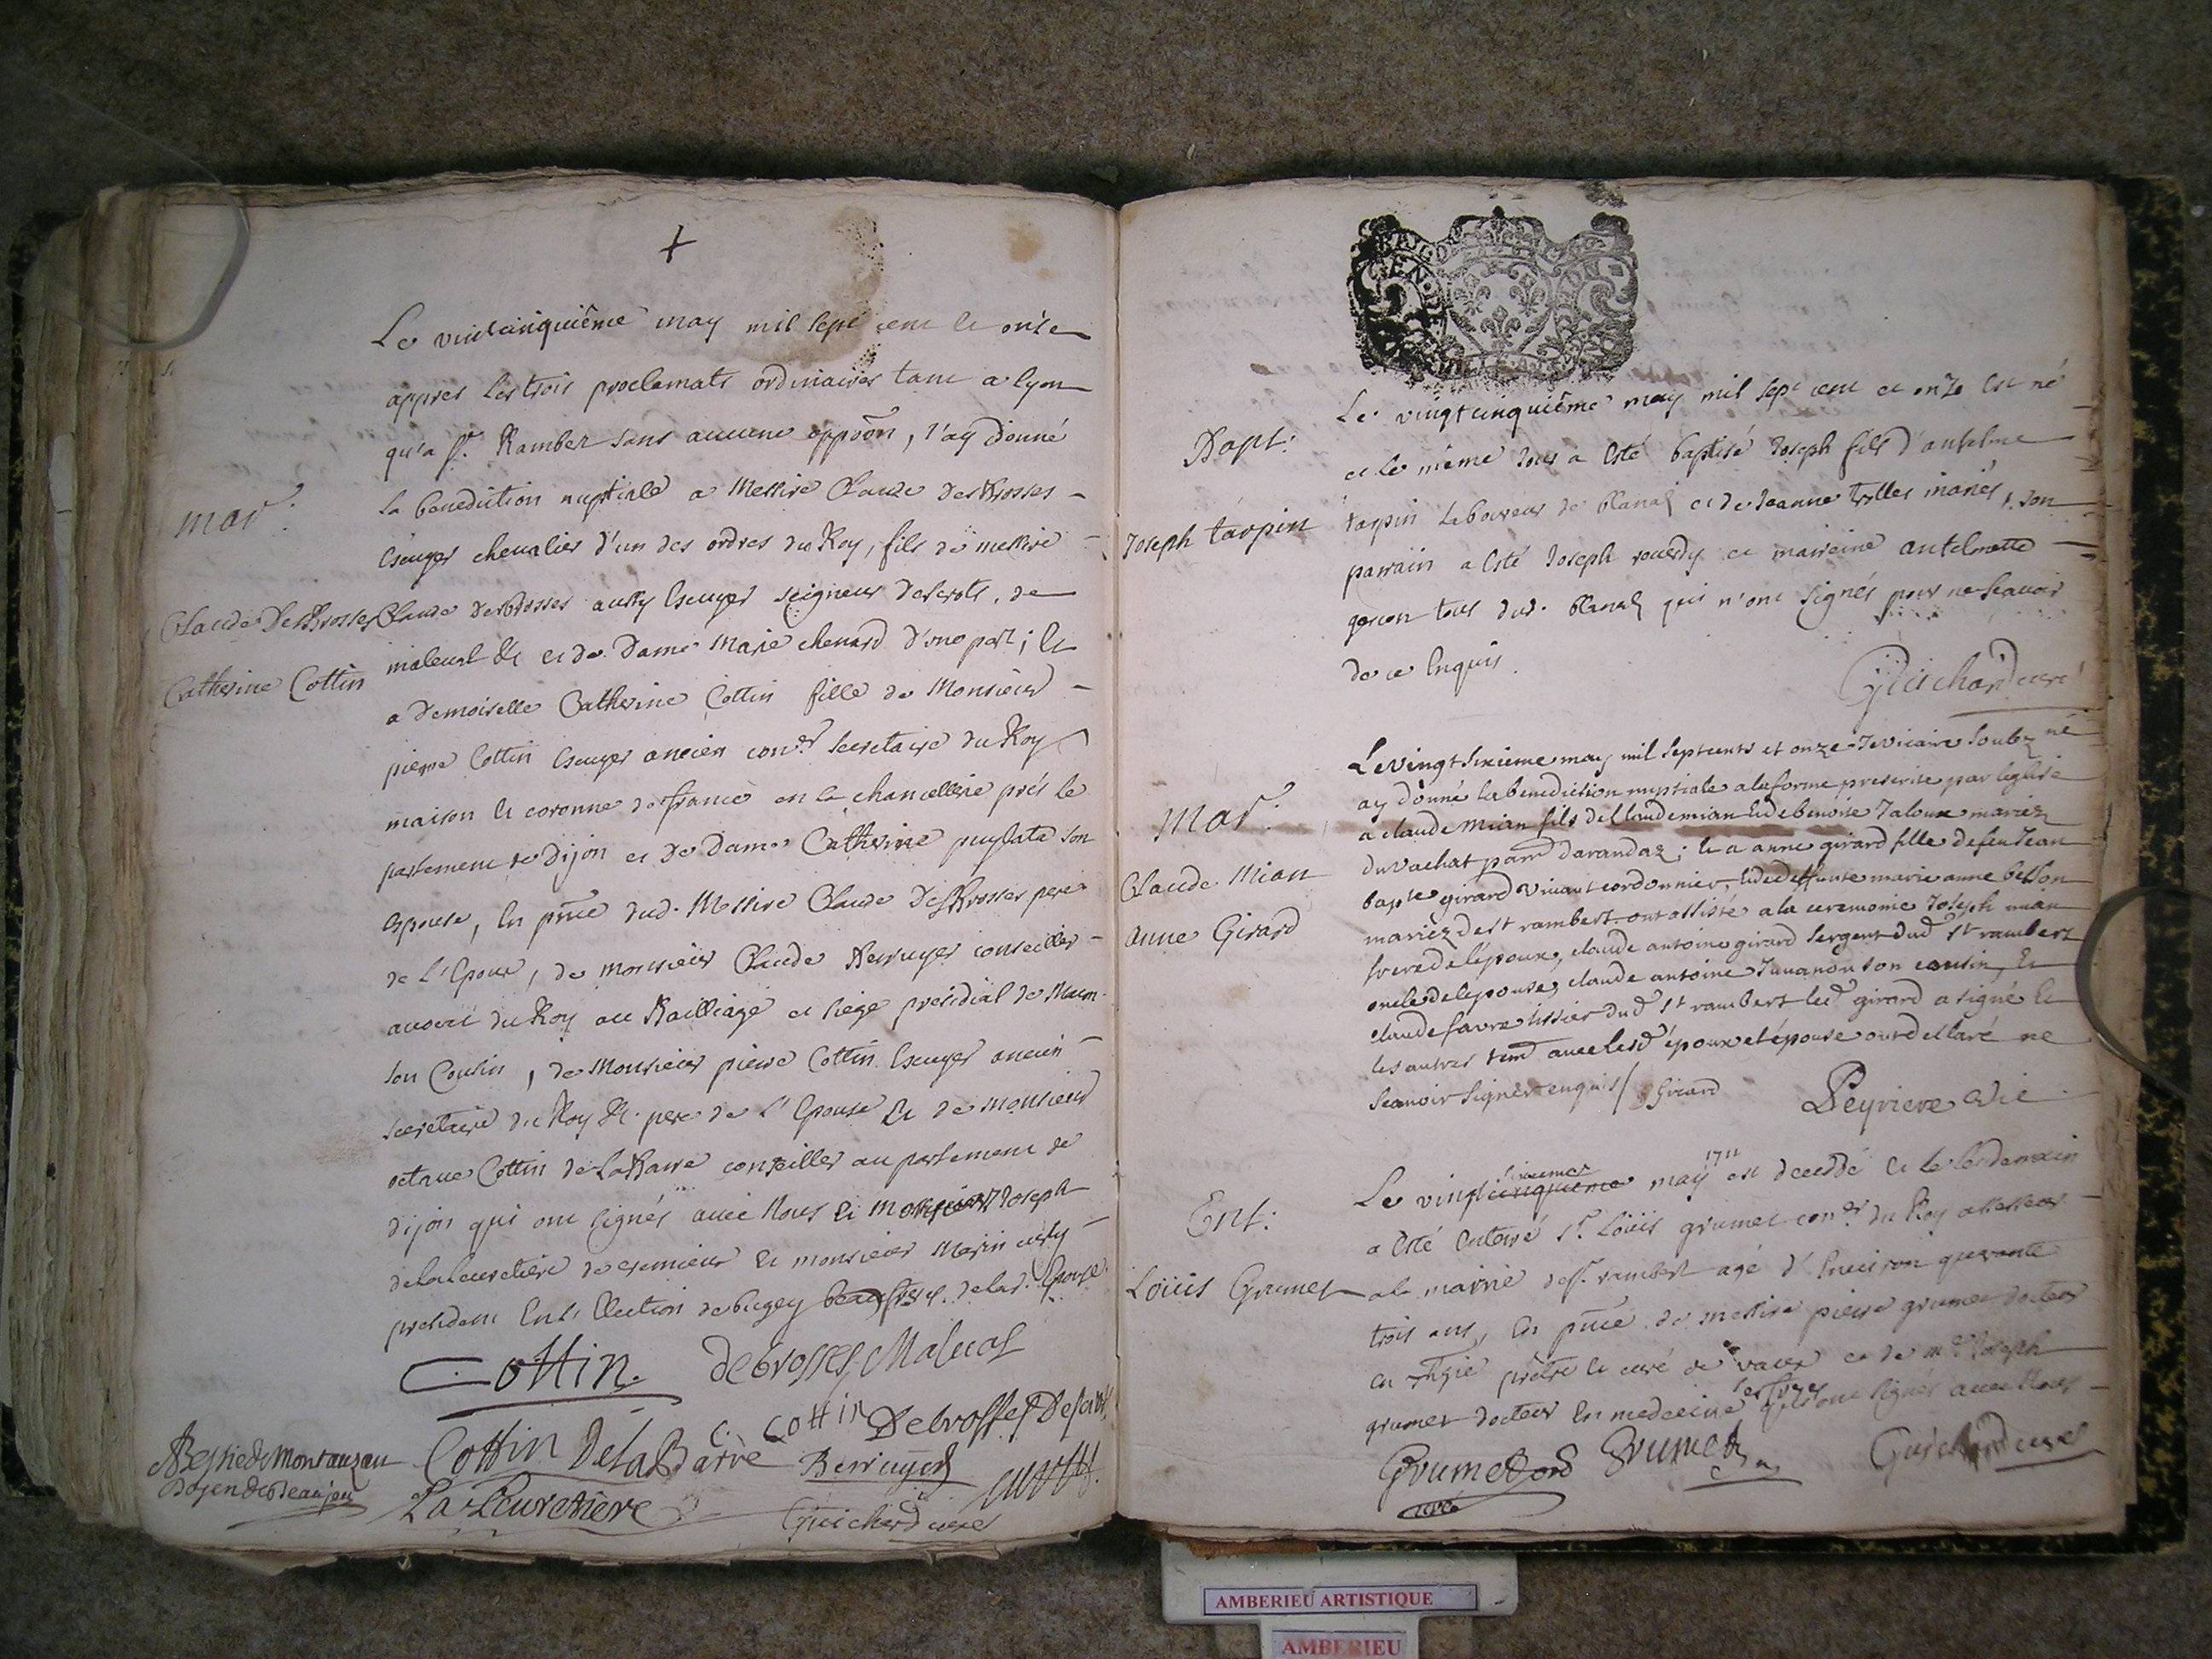 +
Le vint cinquiême may mil sept cent et onze
appres les trois proclamats ordinaires tant a lyon
qu'a st. Rambert sans aucune oppoon, j'ay donné
mar.
la benediction nuptiale a Messire Claude Desbrosses
Escuyer chevalier d'un des ordres du Roy, fils de messire
Claude Desbrosses
Claude desbrosses aussy Escuyer seigneur descrots, de
Catherine Cottin
maleval &c et de Dame Marie chenard d'une part; Et
a Demoiselle Catherine Cottin fille de Monsieur
pierre Cottin Escuyer ancien coner secretaire du Roy
maison et coronne de france en la chancellerie prés le
parlement de Dijon et de Dame Catherine puylata son
Epouse, En pñce dud. Messire Claude Desbrosses pere
de l'Epoux, de monsieur Claude Berruyer conseiller
avocat du Roy au Bailliage et siege presidial de Macon
son Cousin, de Monsieur pierre Cottin Escuyer ancien
secretaire du Roy &c. pere de l'Epouse Et de monsieur
octave Cottin de LaBarre conseiller au parlement de
dijon qui ont signés avec Nous Et Monsieur Joseph
delaLeuretiere de Et monsieur Marin cusy
president En l'Election de bugey beaufrere de lad. Epouse.
Cottin. debrosses Malval
C. Cottin Debrosses Descrots
Bessie de Montauzan Cottin DelaBarre Berruyer
Doyen de Beaujeu La Leuretiere
Guichard curé
Le vingt cinquiême may mil sept cent et onze Est né
Bapt:
et le même jour a Esté baptisé Joseph fils d'antelme
Joseph tarpin
tarpin laboureur de blanaz et de Jeanne trolles mariés, son
parrain a Esté Joseph reverdy et marreine antelmette
gojon tous dud. blanaz qui n'ont signés pour ne sçavoir
de ce Enquis.
Guichard curé
Le vingt sixieme may mil sept cents et onze Je vicaire soubz né
ay donné la benediction nuptiale a la forme prescrite par leglise
Mar.
a claude mian fils de Claude mian Et de benoite Jaloux mariez
du vachat parr d'arandaz; Et a anne girard fille de feu Jean
Claude Mian
bapte girard vivant cordonnier, Et de deffunte marie anne besson
mariez de st rambert. ont assisté a la ceremonie Joseph mian
anne Girard
frere de lépoux, claude antoine girard sergent dud st rambert
oncle de lépouse, claude antoine Juvanon son cousin, Et
claude favre tissier dud st rambert led girard a signé Et
les autres tem avec lesd époux et épouse ont declaré ne
scavoir signer enquis / Girard Peyriere vic
Le vingt cinquieme sixieme may 1711 est decedé et le lendemain
Ent:
a Esté Enterré sr. Loüis grumet coner du Roy assesseur
Loüis Grumet
a la mairie de st. rambert agé d'Environ quarante
trois ans, En pñce de messire pierre grumet docteur
en prêtre et curé de vaux et de mr Joseph
grumet docteur En medecine ses freres qui ont signés avec Nous
Grumet Grumet Guichard curé
curé
AMBERIEU ARTISTIQUE
AMBERIEU